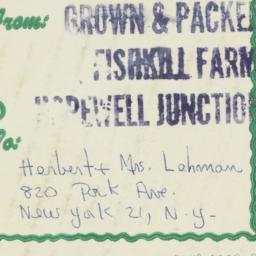 From: GROWN & PACKE
FISHKILL FARM
HOPEWELL JUNCTIO
To:
Herbert + Mrs. Lehman
820 Park Ave.
New York 21, N.Y-